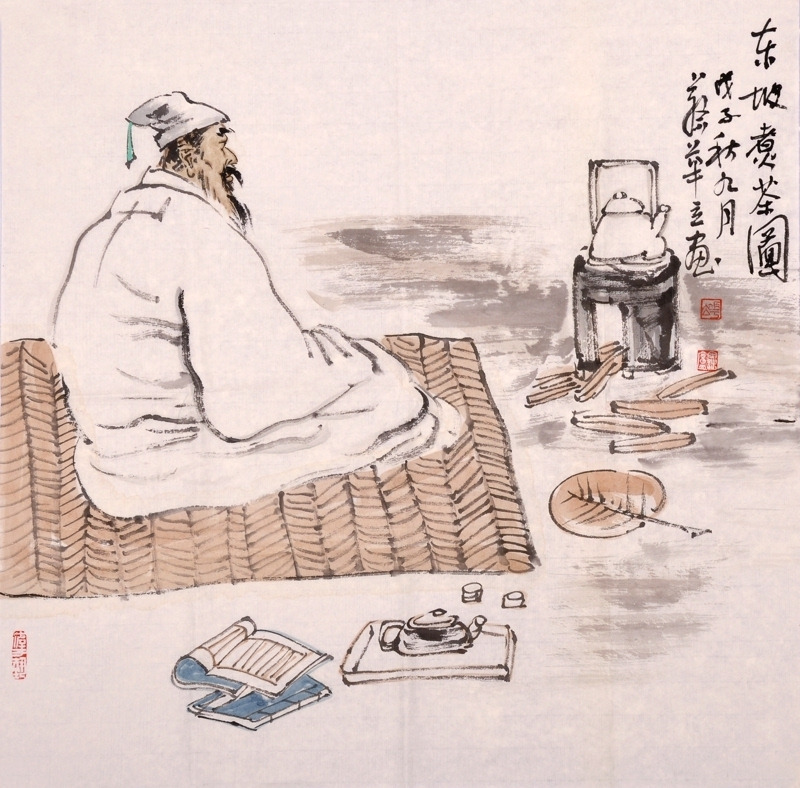 东坡煮茶圖
戊子秋九月
蔡华立画